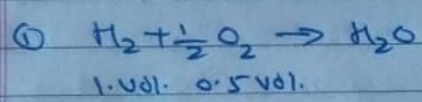 ① H₂ + ½ O₂ → H₂O
1. vol. 0.5 vol.